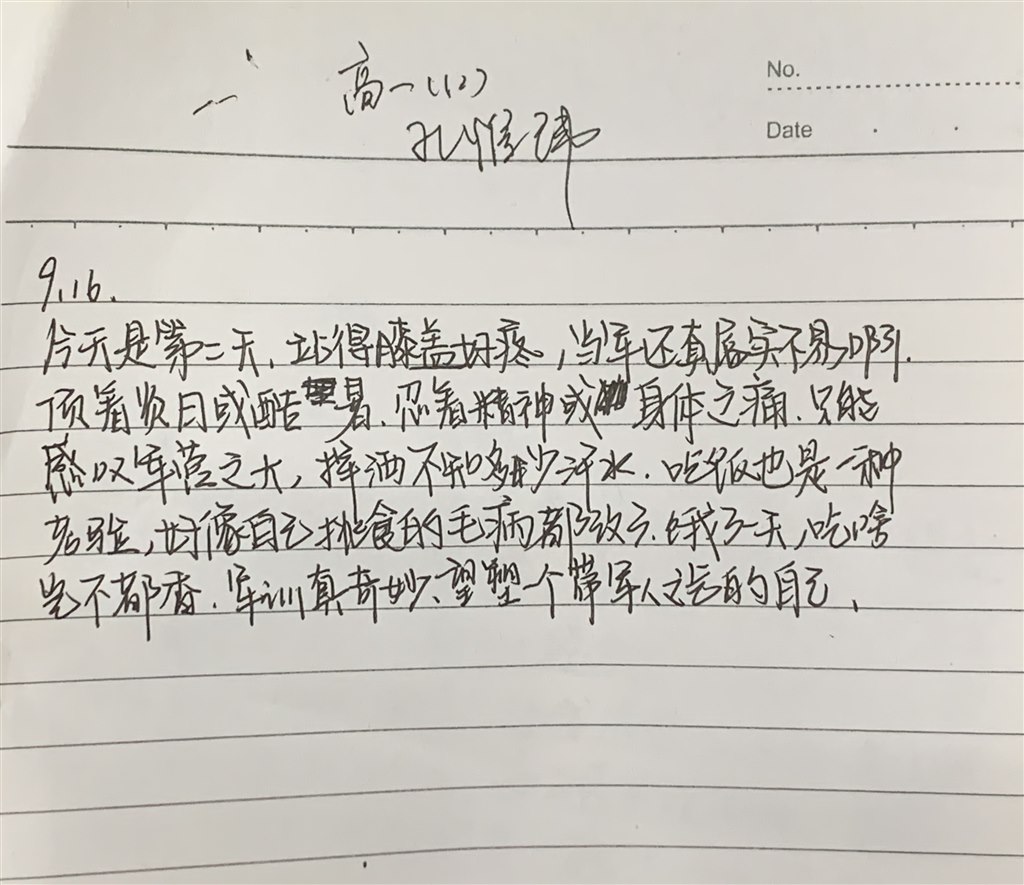 No.
高一(12)
Date
9.16.
今天是第二天，站得膝盖好疼，当军还真属实不易啊.
顶着炎日或酷暑.忍着精神或身体之痛.只能
感叹军营之大，挥洒不知多少汗水.吃饭也是一种
考验，好像自己挑食的毛病都改了.饿了一天，吃啥
岂不都香.军训真奇妙、望塑一个带军人之 的自己、